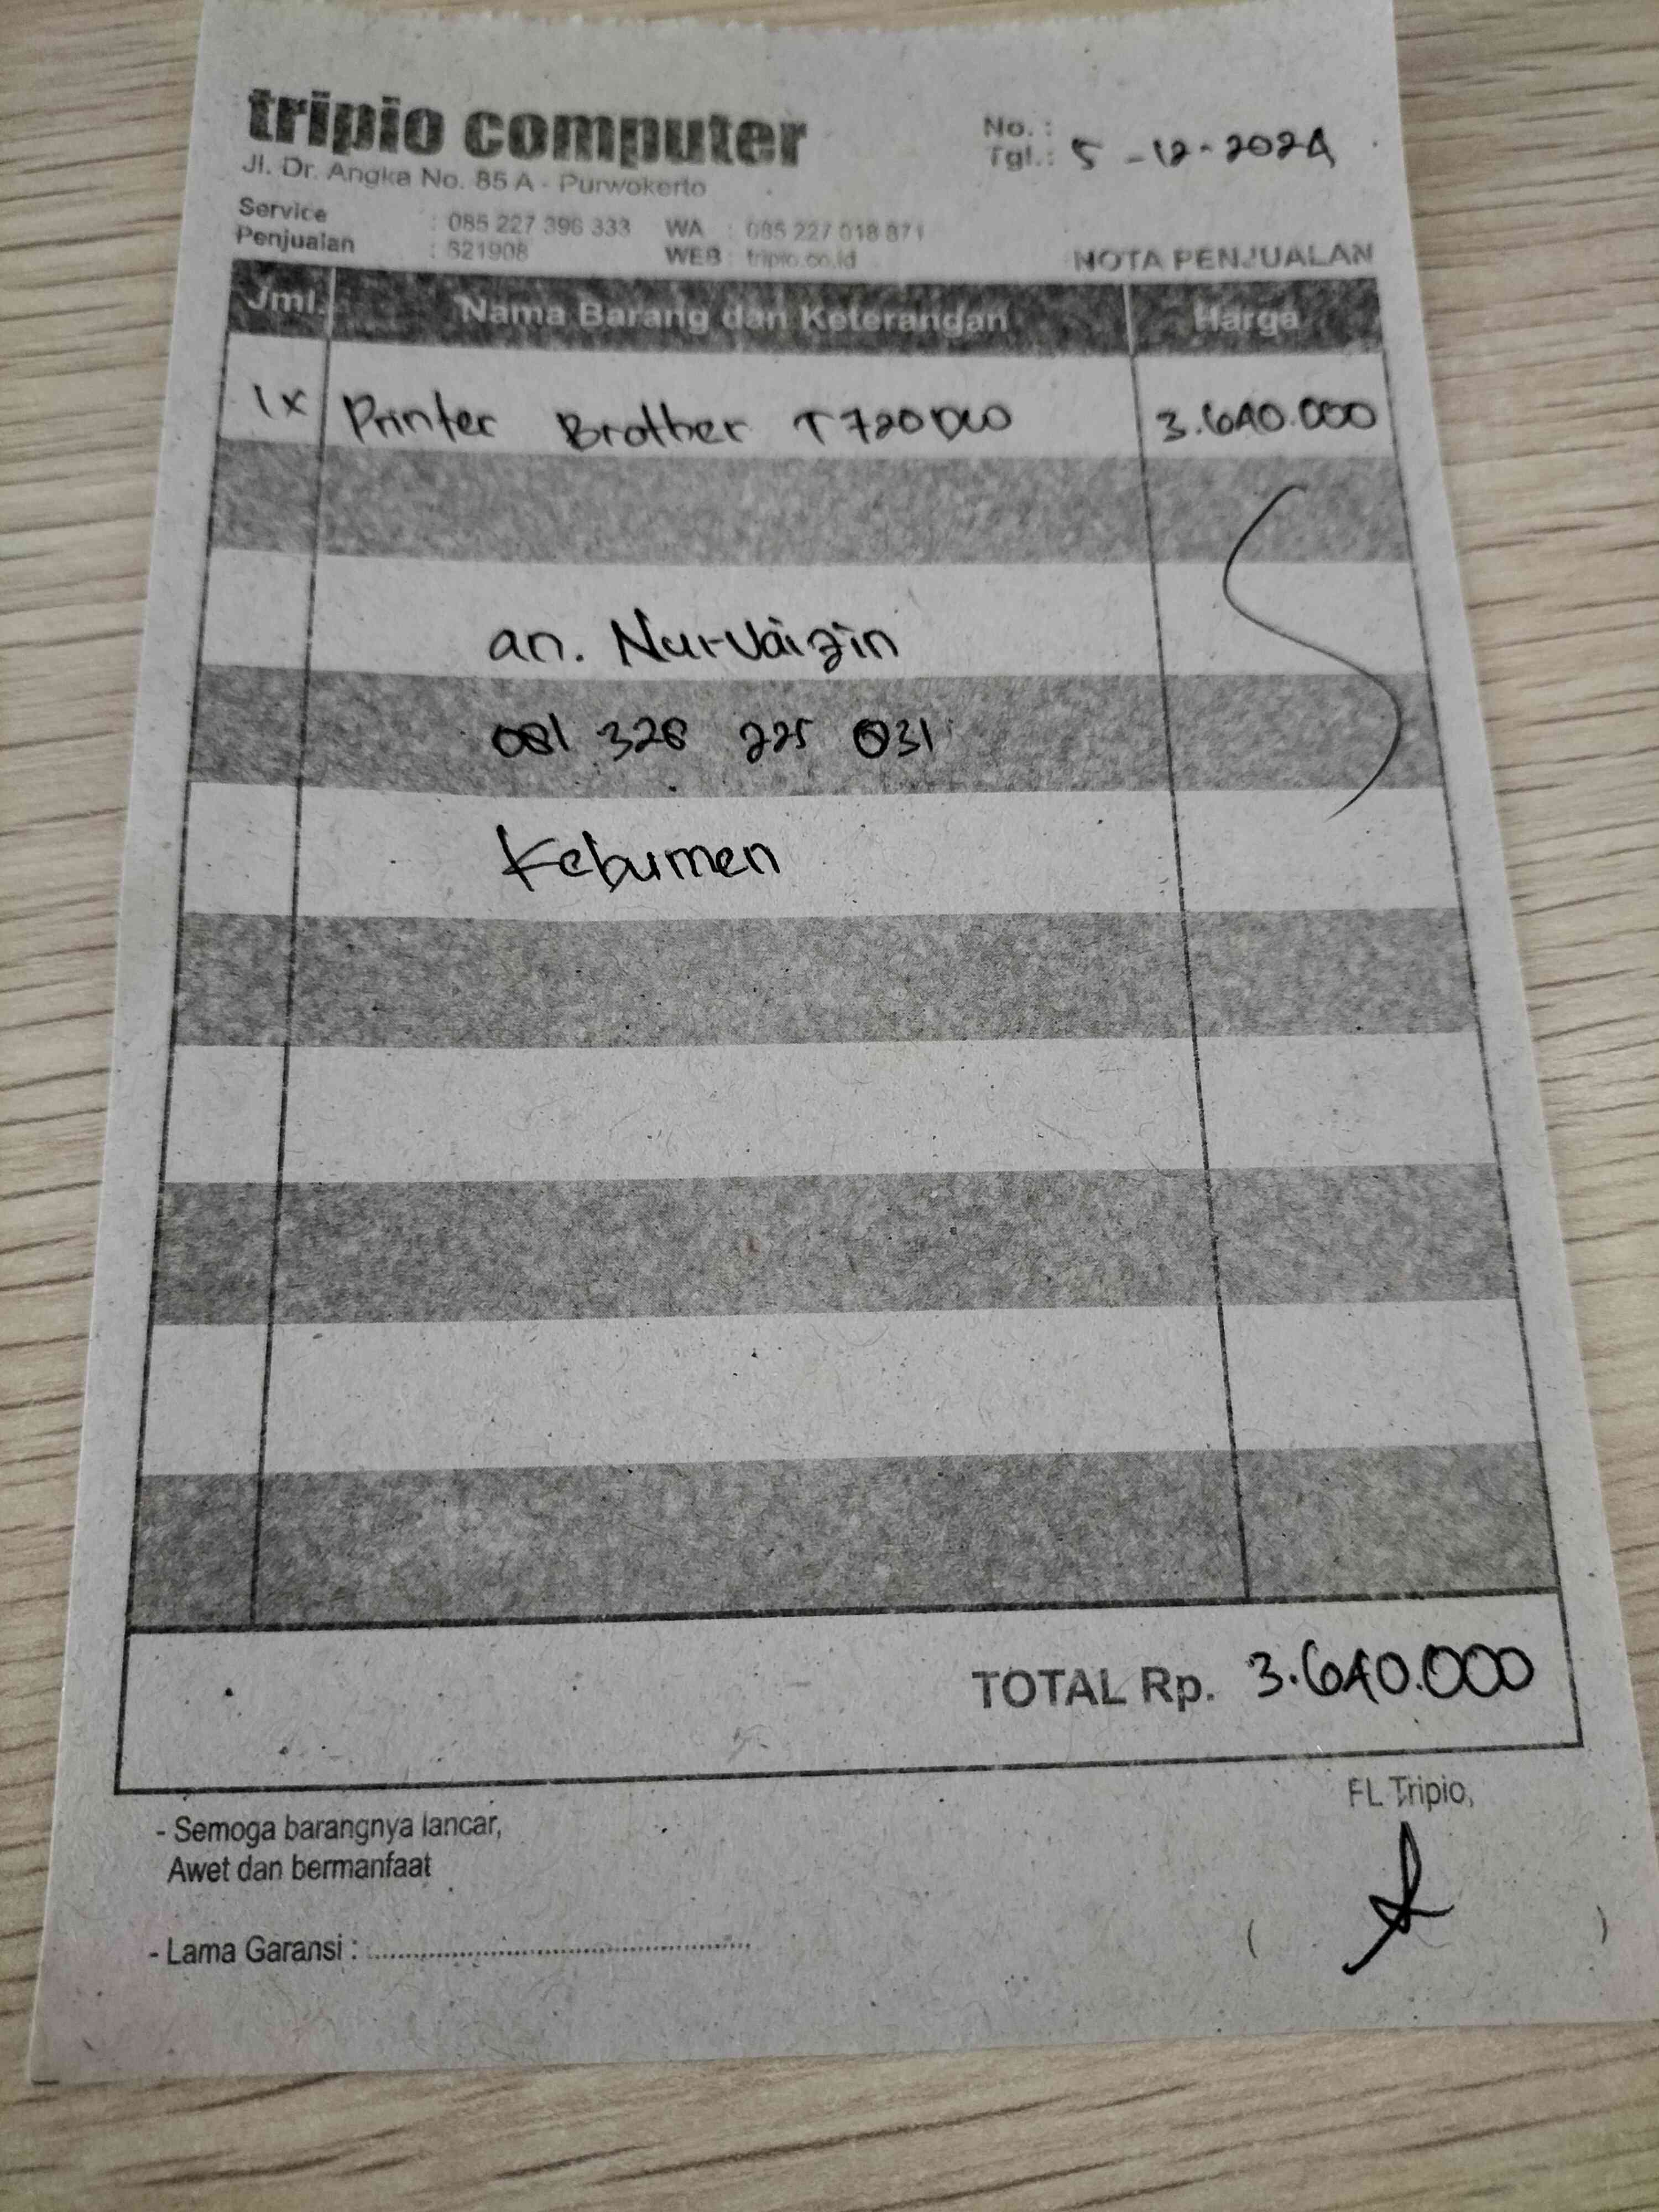 tripio computer
Jl. Dr. Angka No. 85 A - Purwokerto
No. :
Tgl.: 5 - 12 - 2024
Service : 085 227 396 333 WA : 085 227 018 871
Penjualan : 621908 WEB : tripio.co.id
NOTA PENJUALAN
Jml. Nama Barang dan Keterangan Harga
1x Printer Brother T720DW 3.640.000
an. Nurvaizin
081 328 225 031
Kebumen
TOTAL Rp. 3.640.000
- Semoga barangnya lancar,
Awet dan bermanfaat
FL Tripio,
- Lama Garansi : ..........
( )